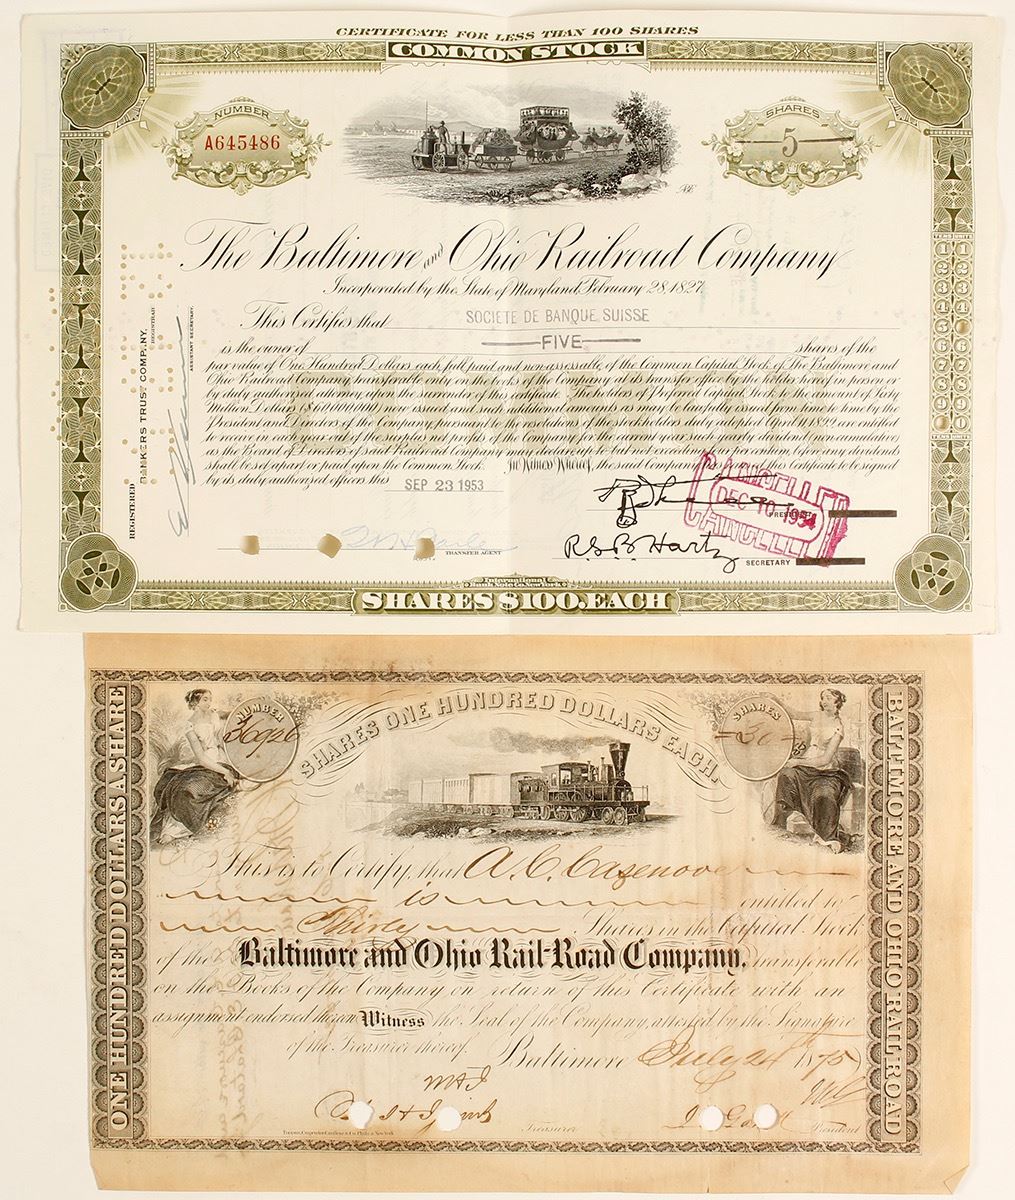 CERTIFICATE FOR LESS THAN 100 SHARES
COMMON STOCK
NUMBER
A645486
SHARES
5
The Baltimore and Ohio Railroad Company
Incorporated by the State of Maryland, February 28, 1827
This Certifies that SOCIETE DE BANQUE SUISSE
is the owner of FIVE shares of the
par value of One Hundred Dollars each, full paid and non-assessable, of the Common Capital Stock of The Baltimore and
Ohio Railroad Company, transferable only on the books of the Company at its transfer office by the holder hereof in person or
by duly authorized attorney, upon the surrender of this certificate. The holders of Preferred Capital Stock to the amount of Sixty
Million Dollars ($60,000,000) now issued and such additional amounts as may be lawfully issued from time to time by the
President and Directors of the Company, pursuant to the resolution of the stockholders duly adopted April 11, 1899, are entitled
to receive in each year out of the surplus net profits of the Company for the current year such yearly dividend, noncumulative
as the Board of Directors of said Railroad Company may declare up to but not exceeding four per centum, before any dividends
shall be set apart or paid upon the Common Stock. In Witness Whereof, the said Company has caused this Certificate to be signed
by its duly authorized officers this SEP 23 1953
CANCELLED
DEC 10 1954
CANCELLED
PRESIDENT
TRANSFER AGENT
SECRETARY
REGISTERED
BANKERS TRUST COMPANY,
REGISTRAR
ASSISTANT SECRETARY
TENS UNITS
1 1
2 2
3 3
4 4
5
6 6
7 7
8 8
9 9
0
TENS UNITS
International
Bank Note Co. New York
SHARES $100. EACH
NUMBER
SHARES ONE HUNDRED DOLLARS EACH.
SHARES
=30=
ONE HUNDRED DOLLARS A SHARE
BALTIMORE AND OHIO RAIL ROAD
This is to Certify, that A. C. Cazenove
is entitled to
Thirty Shares in the Capital Stock
of the Baltimore and Ohio Rail-Road Company, transferable
on the Books of the Company on return of this Certificate with an
assignment endorsed thereon Witness the Seal of the Company, attested by the Signature
of the Treasurer thereof. Baltimore July 24th 1875
Treasurer
President